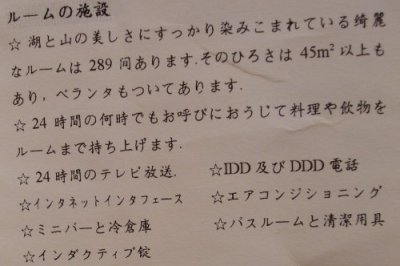 ルームの施設
☆ 湖と山の美しさにすっかり染みこまれている綺麗
なルームは 289 间あります.そのひろさは 45m² 以上も
あり，ベランタもついてあります.
☆ 24 時間の何時でもお呼びにおうじて料理や飲物を
ルームまで持ち上げます.
☆ 24 時間のテレビ放送. ☆IDD 及び DDD 電話
☆インタネットインタフェース ☆エアコンジショニング
☆ミニバーと冷倉庫 ☆バスルームと清潔用具
☆インダクティブ錠